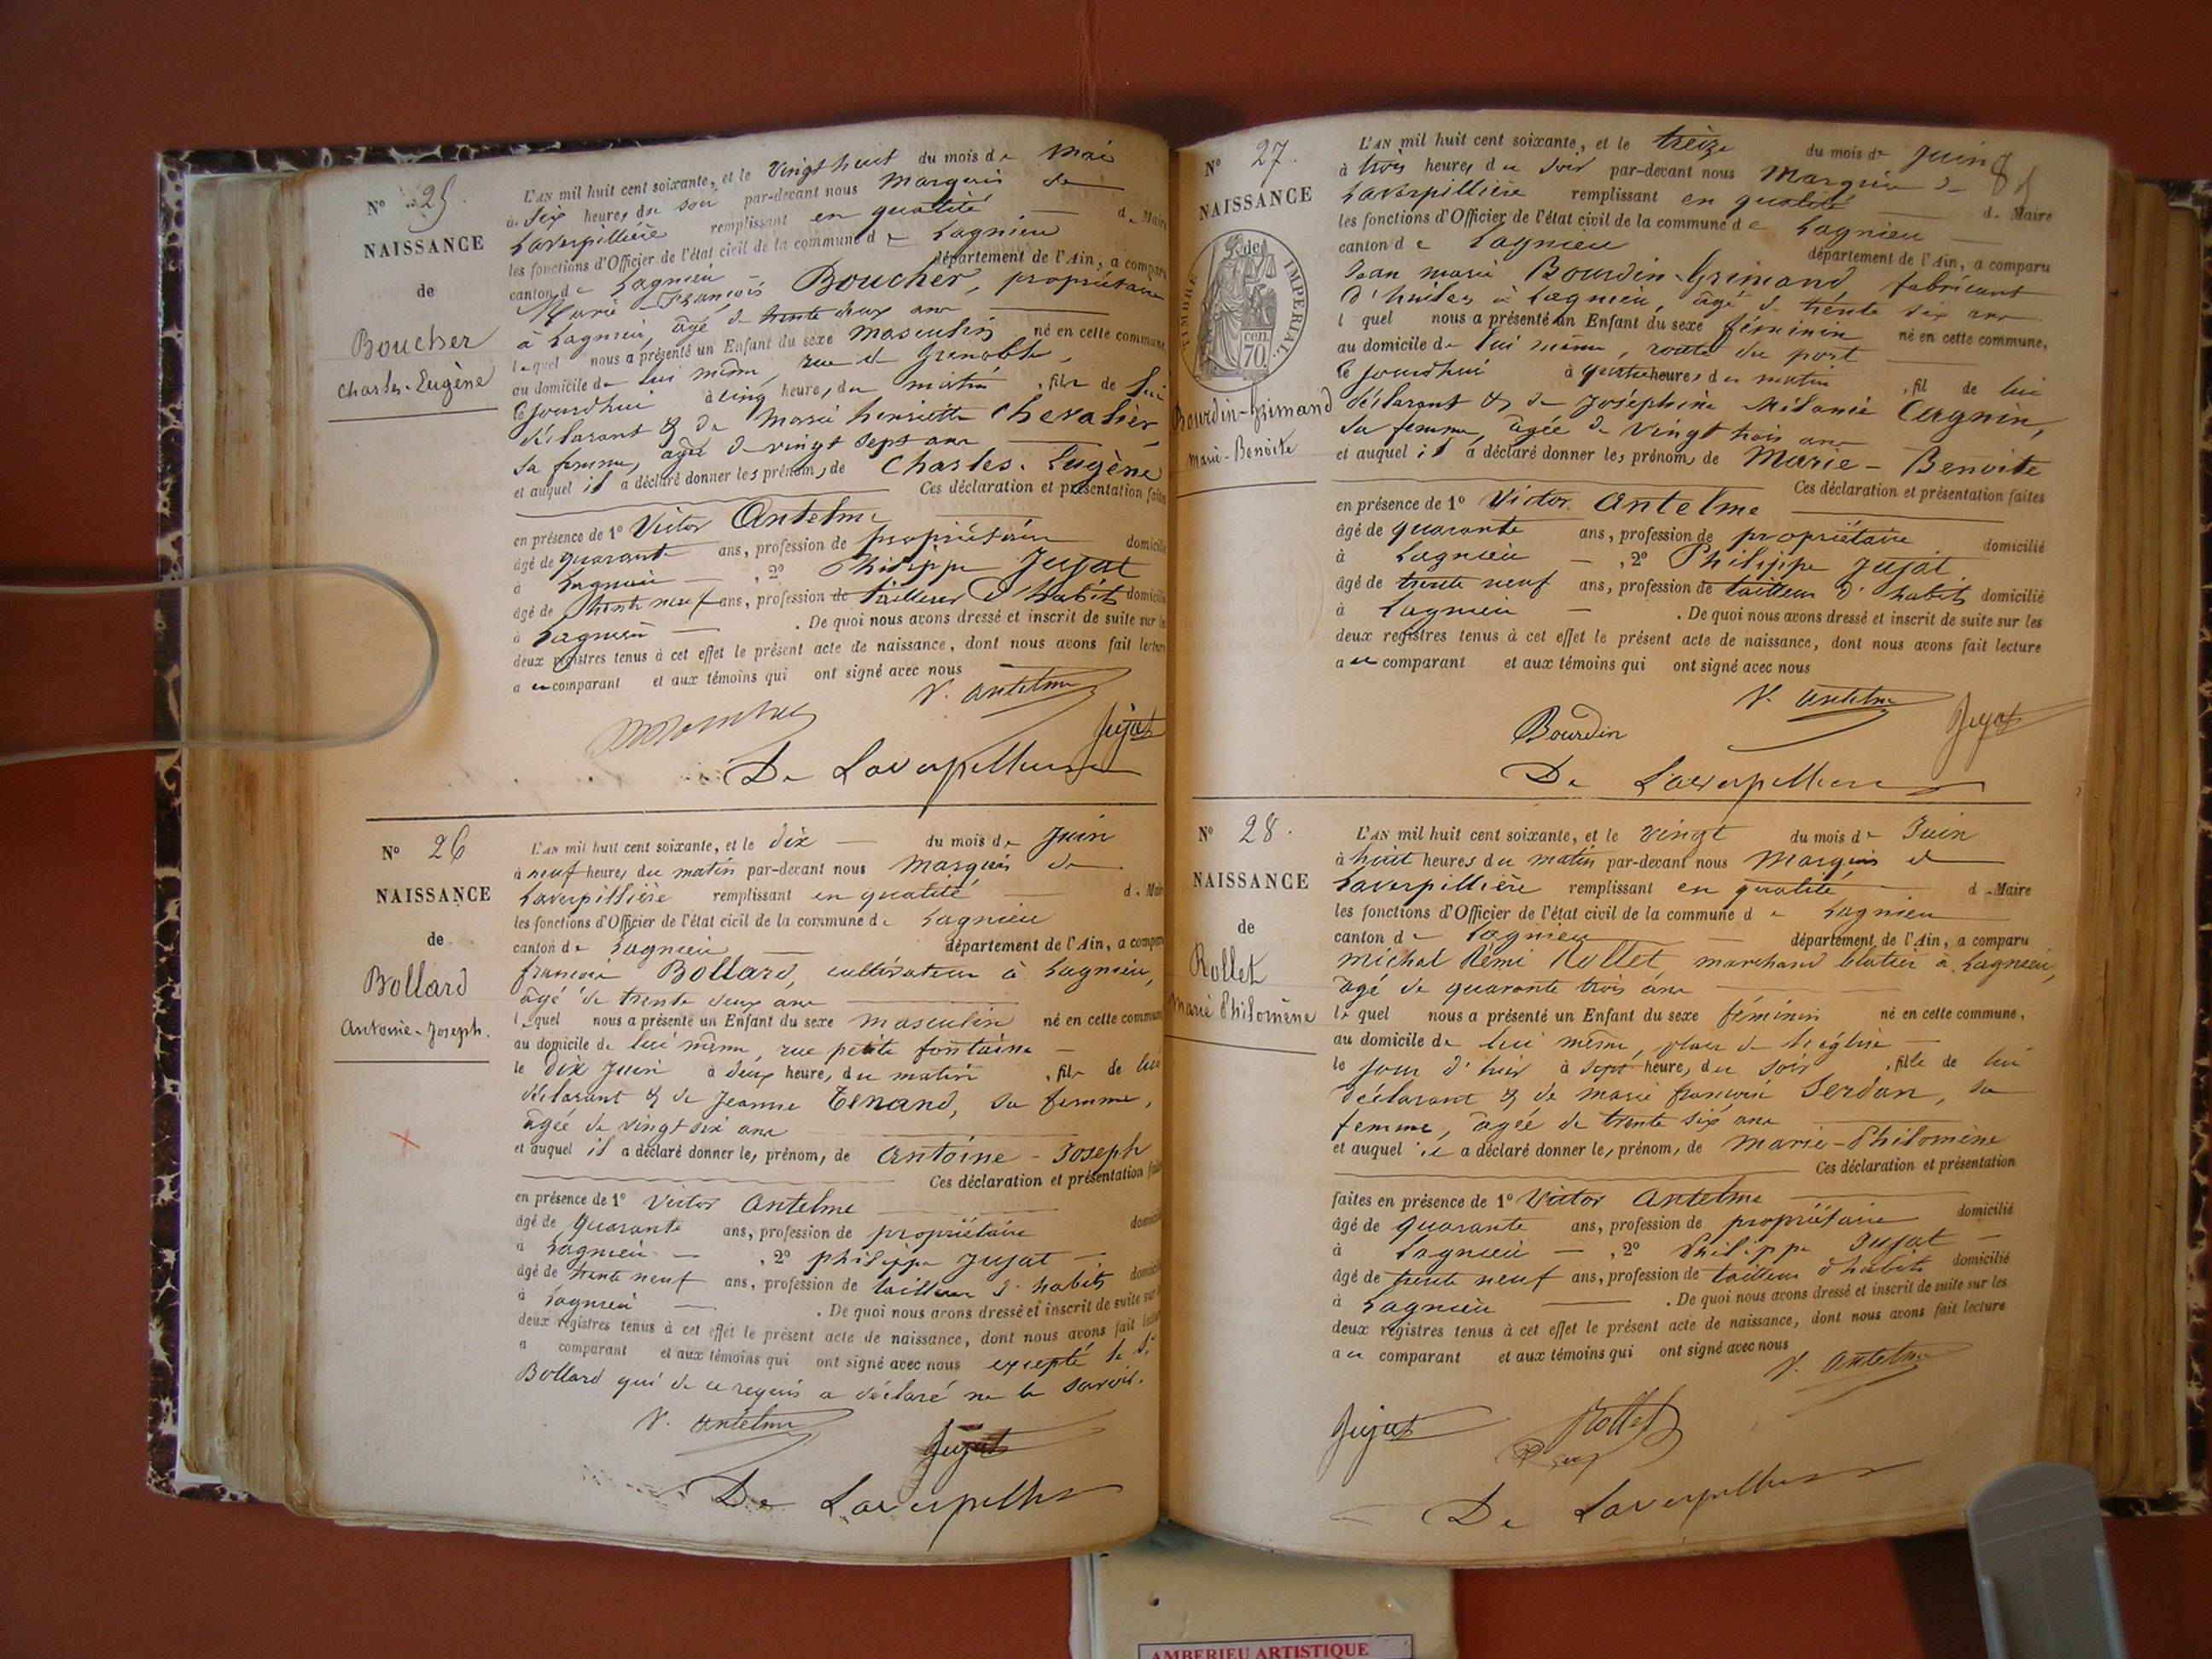 N° 25.
NAISSANCE
de
Boucher
Charles-Eugène
L'AN mil huit cent soixante, et le Vingt huit du mois de Mai
à six heures du soir par-devant nous Marquis de
Laverpillière remplissant en qualité de Maire
les fonctions d'Officier de l'état civil de la commune de Lagnieu
canton de Lagnieu département de l'Ain, a comparu
Marie-François Boucher, propriétaire
à Lagnieu, âgé de trente deux ans
lequel nous a présenté un Enfant du sexe masculin né en cette commune,
au domicile de lui même, rue de Grenoble,
Cejourdhui à cinq heures du matin, fils de lui
déclarant & de Marie henriette Chevalier,
sa femme, âgée de vingt sept ans
et auquel il a déclaré donner les prénoms de Charles-Eugène
Ces déclaration et présentation faites
en présence de 1° Victor Antelme
âgé de quarante ans, profession de propriétaire domicilié
à Lagnieu, 2° Philippe Jujat
âgé de trente neuf ans, profession de tailleur d'habits domicilié
à Lagnieu. De quoi nous avons dressé et inscrit de suite sur les
deux registres tenus à cet effet le présent acte de naissance, dont nous avons fait lecture
au comparant et aux témoins qui ont signé avec nous
V. Antelme
Jujat
De Laverpilliere
N° 26
NAISSANCE
de
Bollard
Antoine-Joseph.
L'AN mil huit cent soixante, et le dix du mois de Juin
à neuf heures du matin par-devant nous Marquis de
Laverpillière remplissant en qualité de Maire
les fonctions d'Officier de l'état civil de la commune de Lagnieu
canton de Lagnieu département de l'Ain, a comparu
françois Bollard, cultivateur à Lagnieu,
âgé de trente deux ans
lequel nous a présenté un Enfant du sexe masculin né en cette commune
au domicile de lui même, rue petite fontaine
le dix Juin à deux heures du matin, fils de lui
déclarant & de Jeanne Tenand, sa femme,
âgée de vingt six ans
et auquel il a déclaré donner les prénoms de Antoine-Joseph
Ces déclaration et présentation faites
en présence de 1° Victor Antelme
âgé de quarante ans, profession de propriétaire domicilié
à Lagnieu, 2° philippe Jujat
âgé de trente neuf ans, profession de tailleur d'habits domicilié
à Lagnieu. De quoi nous avons dressé et inscrit de suite sur les
deux registres tenus à cet effet le présent acte de naissance, dont nous avons fait lecture
a comparant et aux témoins qui ont signé avec nous excepté le Sr
Bollard qui de ce requis a déclaré ne le savoir.
V. Antelme
Jujat
De Laverpilliere
N° 27.
NAISSANCE
TIMBRE IMPERIAL
de
70 cen.
Bourdin-Grimand
Marie-Benoite
L'AN mil huit cent soixante, et le treize du mois de Juin
à trois heures du soir par-devant nous Marquis de
Laverpillière remplissant en qualité de Maire
les fonctions d'Officier de l'état civil de la commune de Lagnieu
canton de Lagnieu département de l'Ain, a comparu
Jean marie Bourdin-Grimand, fabricant
d'huiles à Lagnieu, âgé de trente six ans
lequel nous a présenté un Enfant du sexe féminin né en cette commune,
au domicile de lui même, route du port
Cejourdhui à quatre heures du matin, fil de lui
déclarant & de Joséphine Mélanie Cagnin,
sa femme, âgée de Vingt trois ans
et auquel il a déclaré donner les prénoms de Marie-Benoite
Ces déclaration et présentation faites
en présence de 1° Victor Antelme
âgé de quarante ans, profession de propriétaire domicilié
à Lagnieu, 2° Philippe Jujat
âgé de trente neuf ans, profession de tailleur d'habits domicilié
à Lagnieu. De quoi nous avons dressé et inscrit de suite sur les
deux registres tenus à cet effet le présent acte de naissance, dont nous avons fait lecture
au comparant et aux témoins qui ont signé avec nous
V. Antelme
Bourdin
Jujat
De Laverpilliere
N° 28.
NAISSANCE
de
Rollet
Marie Philomène
L'AN mil huit cent soixante, et le vingt du mois de Juin
à huit heures du matin par-devant nous Marquis de
Laverpillière remplissant en qualité de Maire
les fonctions d'Officier de l'état civil de la commune de Lagnieu
canton de Lagnieu département de l'Ain, a comparu
Michel Rémi Rollet marchand blatier à Lagnieu,
âgé de quarante trois ans
lequel nous a présenté un Enfant du sexe féminin né en cette commune,
au domicile de lui même, place de l'église
le jour d'hier à sept heures du soir, fille de lui
déclarant & de marie françoise Serdon, sa
femme, âgée de trente six ans
et auquel il a déclaré donner les prénoms de Marie-Philomène
Ces déclaration et présentation
faites en présence de 1° Victor Antelme
âgé de quarante ans, profession de propriétaire domicilié
à Lagnieu, 2° Philippe Jujat
âgé de trente neuf ans, profession de tailleur d'habits domicilié
à Lagnieu. De quoi nous avons dressé et inscrit de suite sur les
deux registres tenus à cet effet le présent acte de naissance, dont nous avons fait lecture
au comparant et aux témoins qui ont signé avec nous
V. Antelme
Jujat Rollet
De Laverpilliere
AMBERIEU ARTISTIQUE